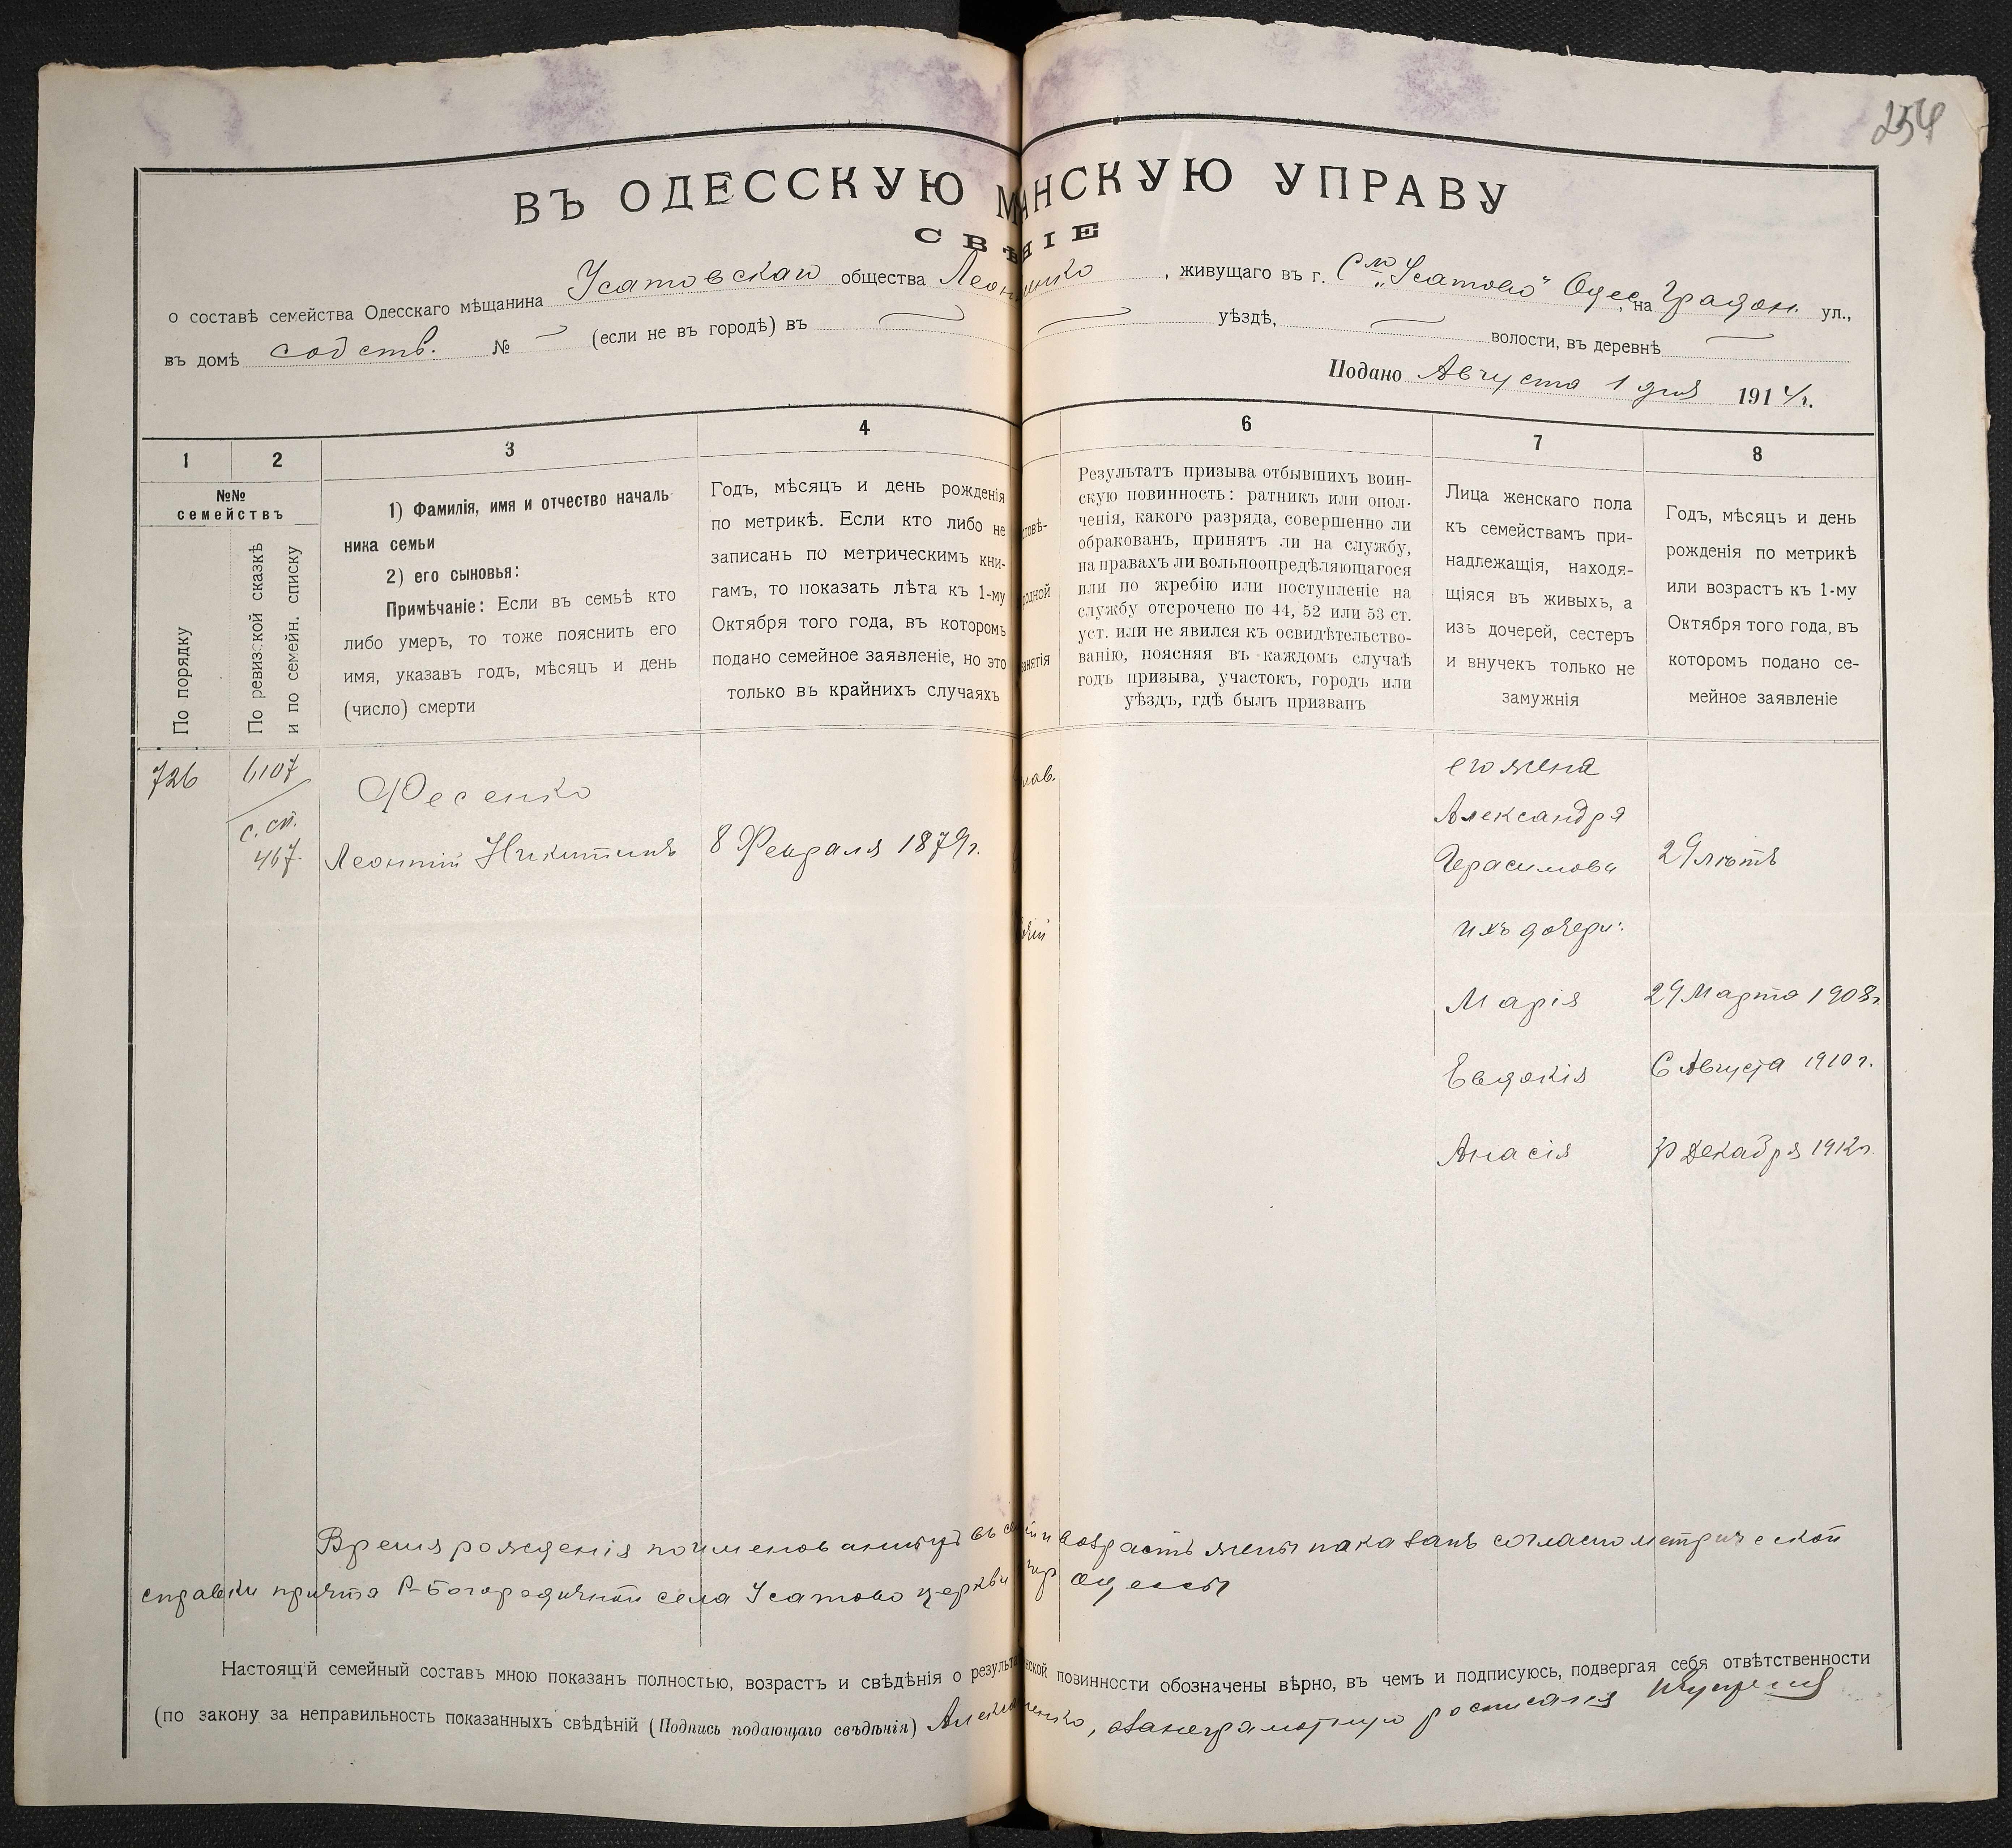 254
ВЪ ОДЕССКУЮ МАНСКУЮ УПРАВУ
СВѢНІЕ
о составѣ семейства Одесскаго мѣщанина Усатовскаго общества Леон енко, живущаго въ г. С-ло „Усатово" Одес. на Градон. ул.,
въ домѣ собств. № — (если не въ городѣ) въ — уѣздѣ, — волости, въ деревнѣ —
Подано Августа 1 дня 1914 г.
1 2 3 4 6 7 8
№№ семействъ
По порядку
По ревизской сказкѣ и по семейн. списку
1) Фамилія, имя и отчество началь-
ника семьи
2) его сыновья:
Примѣчаніе: Если въ семьѣ кто
либо умеръ, то тоже пояснить его
имя, указавъ годъ, мѣсяцъ и день
(число) смерти
Годъ, мѣсяцъ и день рожденія
по метрикѣ. Если кто либо не
записанъ по метрическимъ кни-
гамъ, то показать лѣта къ 1-му
Октября того года, въ которомъ
подано семейное заявленіе, но это
только въ крайнихъ случаяхъ
повѣ-
родной
анятія
Результатъ призыва отбывшихъ воин-
скую повинность: ратникъ или опол-
ченія, какого разряда, совершенно ли
обракованъ, принятъ ли на службу,
на правахъ ли вольноопредѣляющагося
или по жребію или поступленіе на
службу отсрочено по 44, 52 или 53 ст.
уст. или не явился къ освидѣтельство-
ванію, поясняя въ каждомъ случаѣ
годъ призыва, участокъ, городъ или
уѣздъ, гдѣ былъ призванъ
Лица женскаго пола
къ семействамъ при-
надлежащія, находя-
щіяся въ живыхъ, а
изъ дочерей, сестеръ
и внучекъ только не
замужнія
Годъ, мѣсяцъ и день
рожденія по метрикѣ
или возрастъ къ 1-му
Октября того года, въ
которомъ подано се-
мейное заявленіе
726 6107
с. сп.
467.
Фесенко
Леонтій Никитинъ 8 Февраля 1879 г.
лав.
его жена
Александра
Герасимова 29 лѣтъ
ихъ дочери:
Марія 29 Марта 1908 г.
Евдокія 6 Августа 1910 г.
Анасія Декабря 1912 г.
Время рожденія поименованныхъ въ се и возрастъ жены показанъ согласно метрической
справки причта Р-Богородичной села Усатово церкви гр Одессы
Настоящій семейный составъ мною показанъ полностью, возрастъ и свѣдѣнія о результа нской повинности обозначены вѣрно, въ чемъ и подписуюсь, подвергая себя отвѣтственности
(по закону за неправильность показанныхъ свѣдѣній (Подпись подающаго свѣдѣнія) енко, а за неграмотную росписался